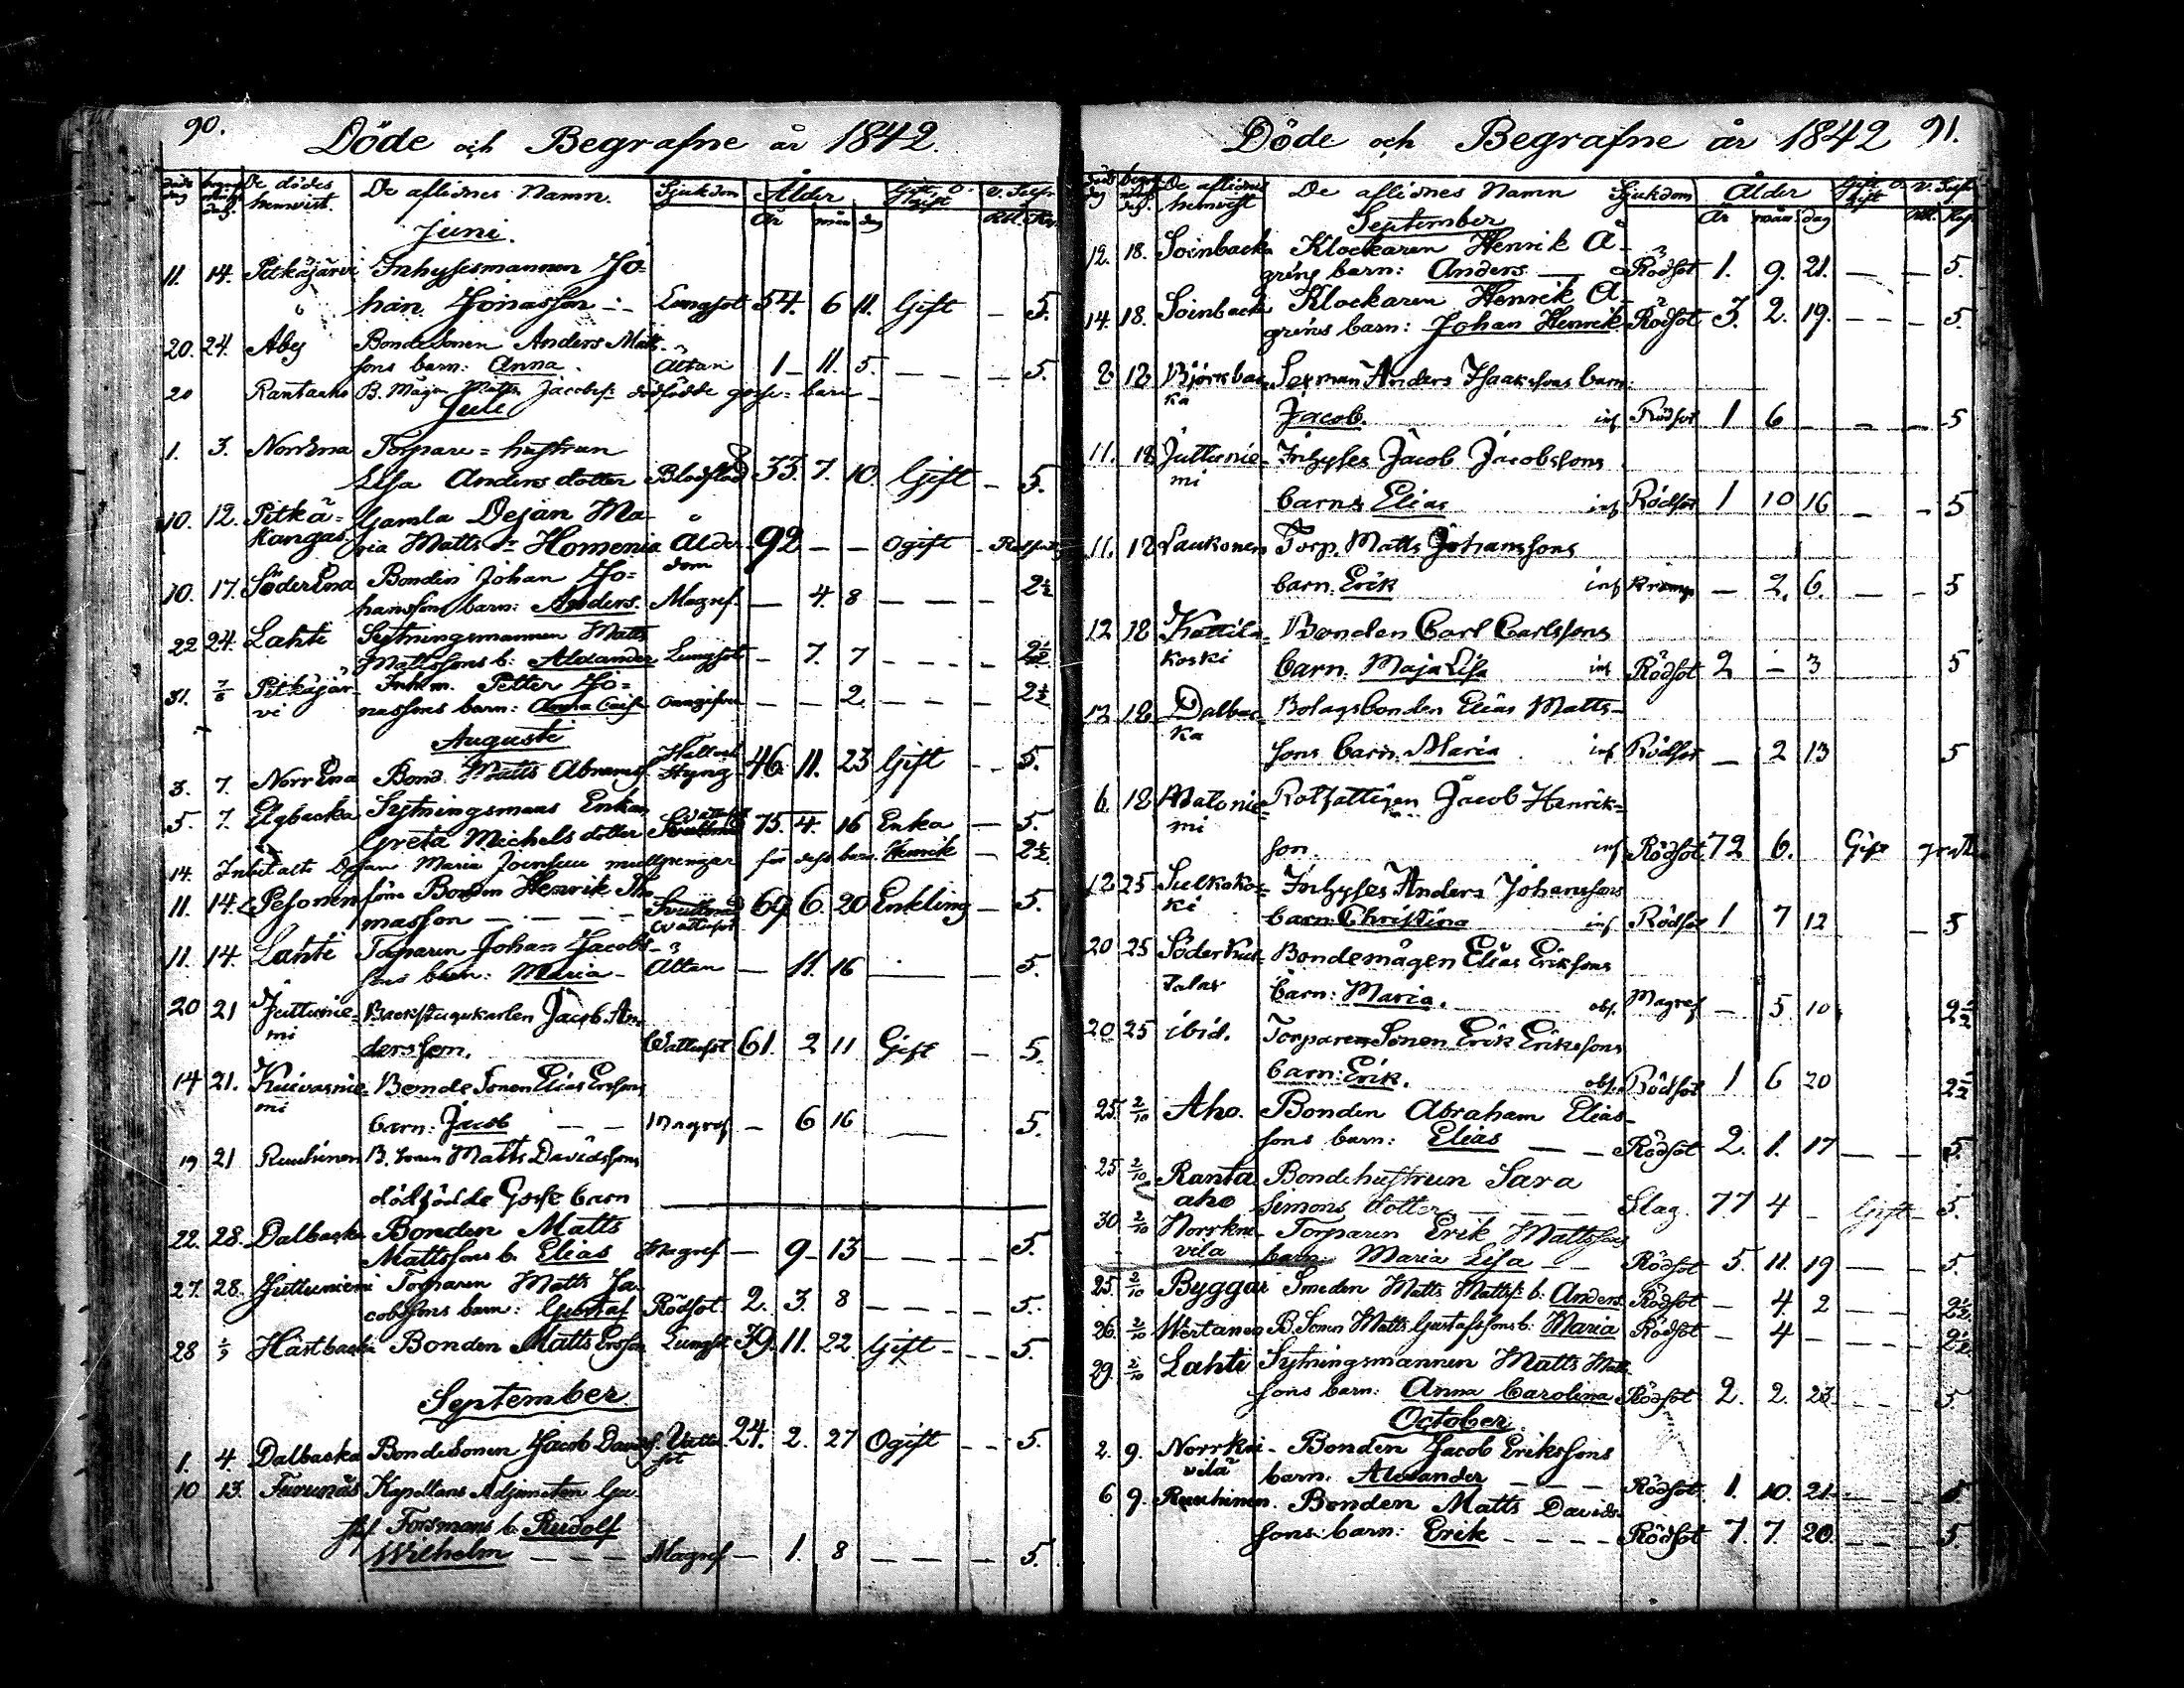 90.
Döde och Begrafne år 1842.
De dödes hemvist. De aflidnes Namn. Sjukdom Ålder
År mån dag
Juni.
11. 14. Pitkäjärvi Inhysesmannen Jo-
han Jonasson Lungsot 54. 6 11. Gift 5.
20. 24. Aby Bondesonen Anders Matts-
sons barn: Anna. Ältan 1 11. 5. 5.
20 Rantaaho B. Mågen Matts Jacobss: dödfödde gosse-barn
Juli
1. 3. Norrena Torpare-hustrun
Lisa Anders dotter Blodflöd 33. 7. 10. Gift 5.
10. 12. Pitkä- Gamla Dejan Ma-
kangas. ria Matts dr Homenia Ålder- 92 Ogift
dom
10. 17. Söderena Bonden Johan Jo-
hanssons barn: Anders. Magref. 4. 8 2½
22 24. Lahti Sytningsmannen Matts
Mattssons b: Alexander Lungsot 7. 7 2½
31. 7/8 Pitkäjär- Inh.m. Petter Jo-
vi nassons barn: Anna Cais. 2. 2½
Augusti
3. 7. Norrena Bond. Matts Abramss. Håll och Styng 46. 11. 23 Gift 5.
5. 7. Elgbacka Sytningsmans Enkan
Greta Michels dotter 75. 4. 16 Enka 5.
14. Maria mullpengar för dess barn Henrik 2½
11. 14. Pesonen förre Bonden Henrik Tho-
masson Wattusot 69 6. 20 Enkling 5.
11. 14. Lahti Torparen Johan Jacobs-
sons barn: Maria Ältan 11. 16 5.
20 21 Juttunie- Backstugukarlen Jacob An-
mi
dersson. Wattusot 61. 2 11 Gift 5.
14 21. Kuivasnie- Bonde Sonen Elias Erssons
mi
barn: Jacob Magref 6 16 5.
19 21 Ruuhinen B. Sonen Matts Davidssons
dödfödde Gosse barn
22. 28. Dalbacka Bonden Matts
Mattssons b. Elias Magref 9 13 5.
27. 28. Juttuniemi Torparen Matts Ja-
cobssons barn: Gustaf Rödsot 2. 3. 8 5.
28 1/9 Hästbacka Bonden Matts Ersson Lungst. 39. 11. 22 Gift 5.
September
1. 4. Dalbacka Bondesonen Jacob Davidss. Vattu- 24. 2. 27 Ogift 5.
sot
10 13. Furunäs Kapellans Adjuncten Gu-
staf Forsmans b. Rudolf
Wilhelm Magref 1. 8 5.
91.
Döde och Begrafne år 1842
De aflidnes hemvist De aflidnes Namn Sjukdom Ålder
År mån dag
September
12. 18. Soinbacka Klockaren Henrik A-
gréns barn: Anders Rödsot 1. 9. 21. 5.
14. 18. Soinbacka Klockaren Henrik A-
gréns barn: Johan Henrik Rödsot 3. 2. 19. 5.
8 18 Björkbac- Sexman Anders Isaakssons barn:
ka
Jacob. inf Rödsot 1 6 5
11. 18 Juttunie- Inhyses Jacob Jacobssons
mi
barn: Elias inf Rödsot 1 10 16 5
11. 18 Laukonen Torp. Matts Johanssons
barn: Erik inf Kramp 2. 6. 5
12 18 Kattila- Bonden Carl Carlssons
koski barn: Maja Lisa inf Rödsot 2 3 5
12 18 Dalbac- Bolagsbonden Elias Matts-
ka
sons barn: Maria inf Rödsot 2 13 5
6. 18 Matonie- Rotfattigen Jacob Henrik-
mi
son. inf Rödsot 72 6. Gift
12 25 Sulkako- Inhyses Anders Johanssons
ki barn: Christina inf Rödsot 1 7 12 5
20 25 Söderkul- Bondemågen Elias Erikssons
talas barn: Maria. obs. Magref 5 10 2½
20 25 ibid. Torpare Sonen Erik Erikssons
barn: Erik. obs. Rödsot 1 6 20 2½
25. 2/10 Aho. Bonden Abraham Elias-
sons barn: Elias Rödsot 2. 1. 17 5.
25 2/10 Ranta Bondehustrun Sara
aho Simons dotter Slag. 77 4 Gift 5.
30 2/10 Norrkui- Torparen Erik Mattssons
vila barn: Maria Lisa Rödsot 5. 11. 19 5.
25. 2/10 Byggar Smeden Matts Mattss: b: Anders Rödsot 4 2 2½
26. 2/10 Wertanen B. Sonen Matts Gustafssons b: Maria Rödsot 4 2½
29. 2/10 Lahti Sytningsmannen Matts Matts-
sons barn: Anna Carolina Rödsot 2. 2. 23. 5
October
2. 9. Norrkui- Bonden Jacob Erikssons
vila barn: Alexander Rödsot 1. 10. 21. 5
6 9. Ruuhinen. Bonden Matts Davids-
sons barn: Erik Rödsot 7. 7. 20. 5